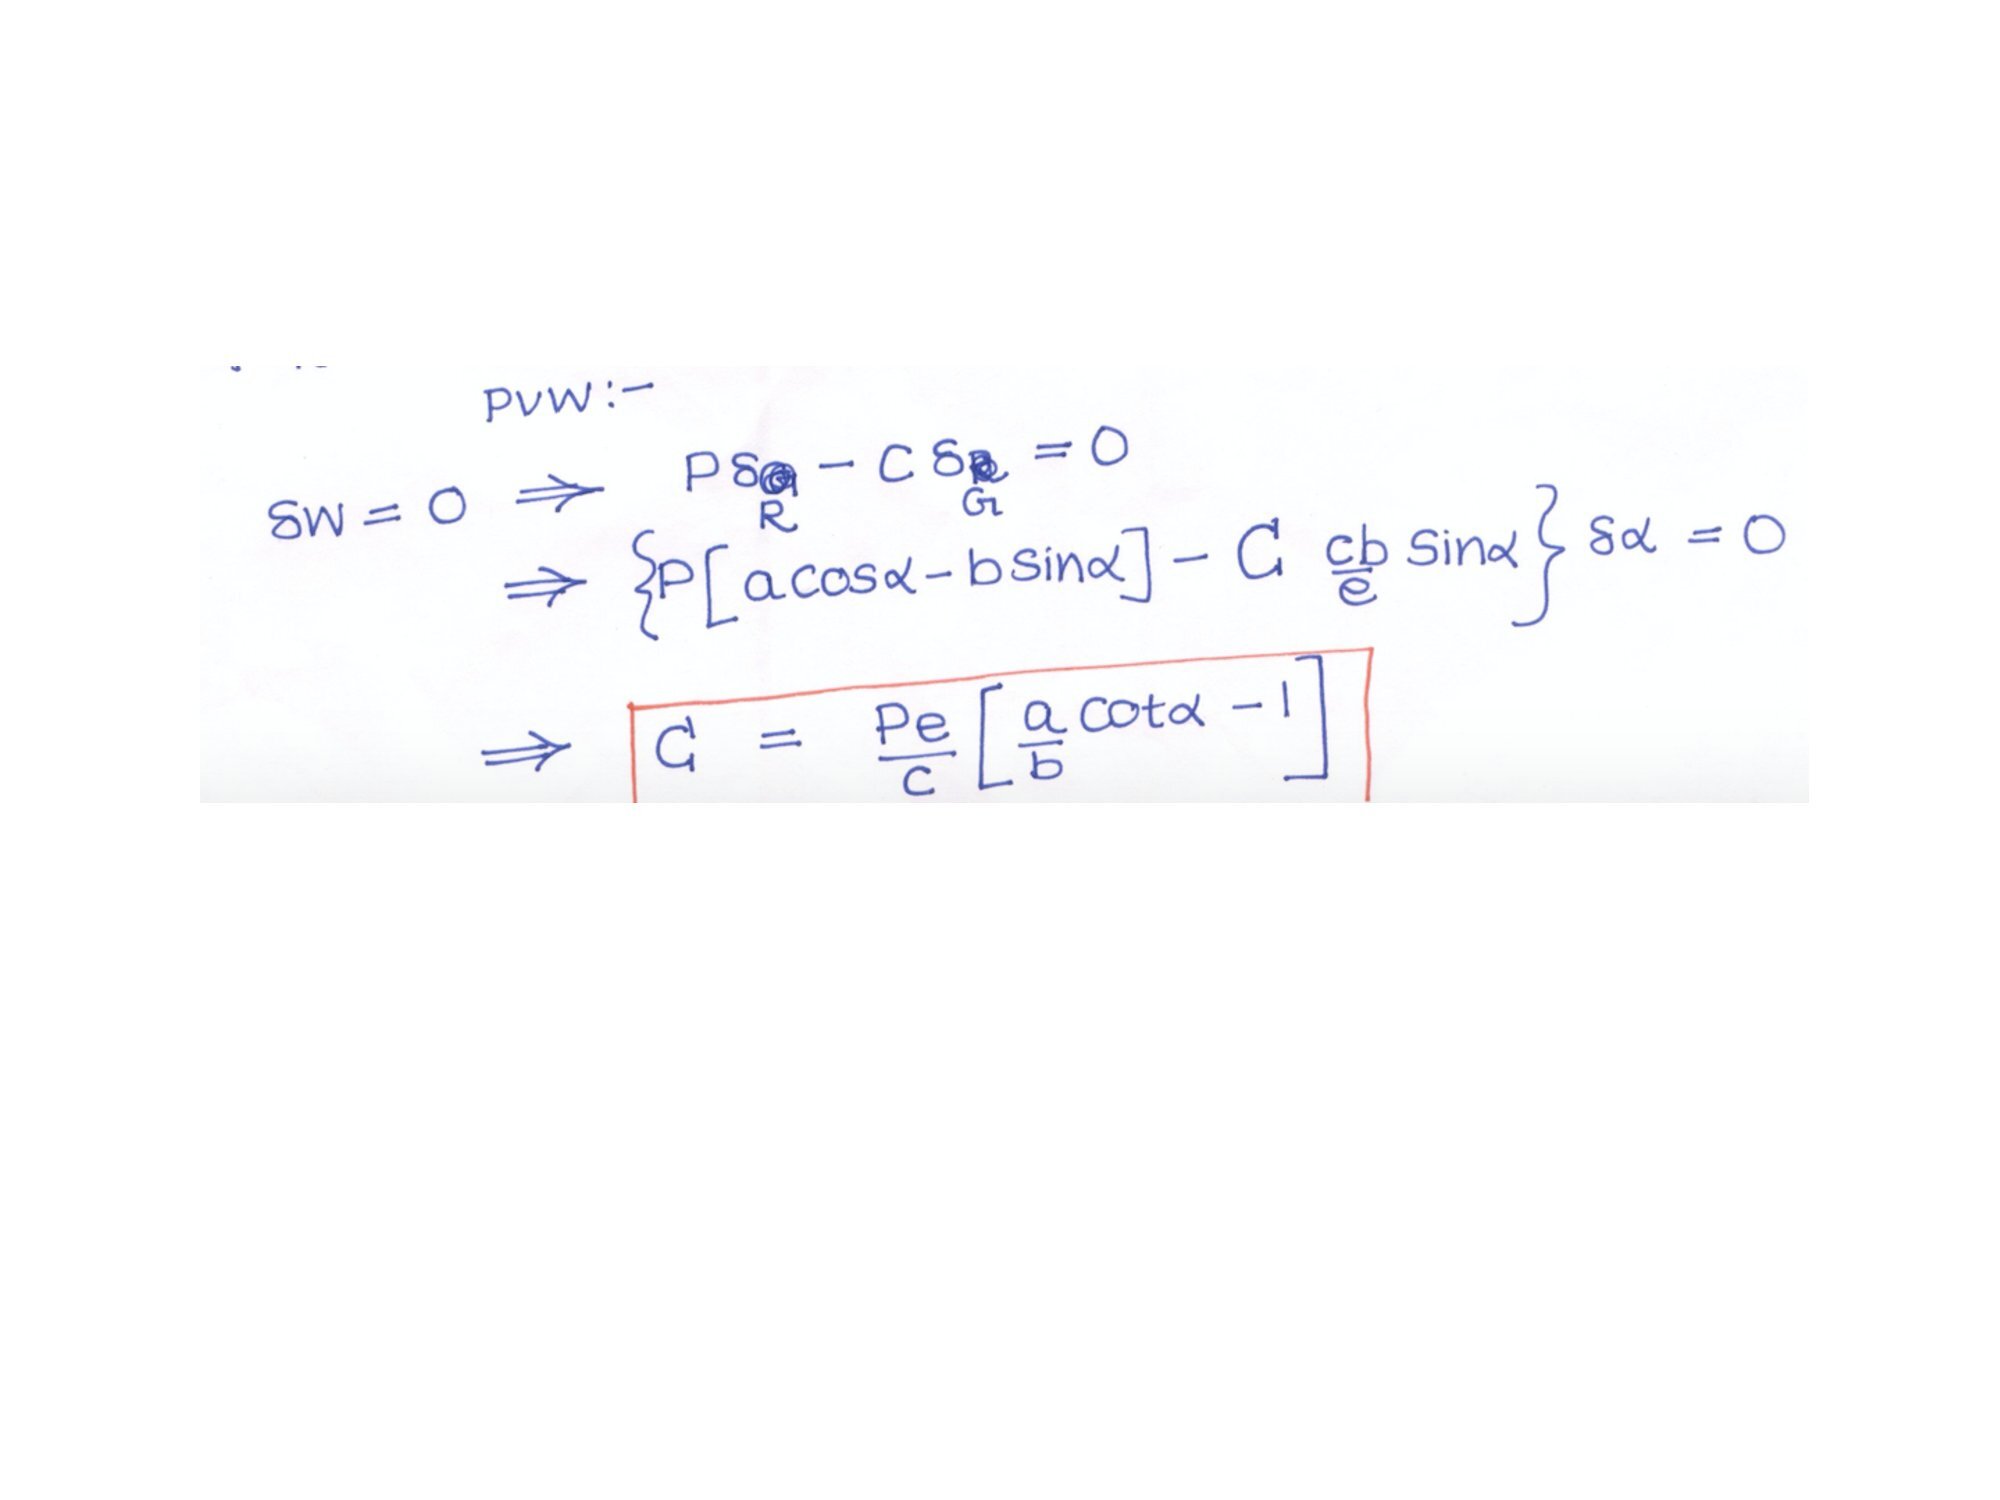 PVW:-
δW = 0 ⇒ Pδ_R - Cδ_G = 0
⇒ {P[a cosα - b sinα] - C cb/e sinα} δα = 0
⇒ C = Pe/c [a/b cotα - 1]